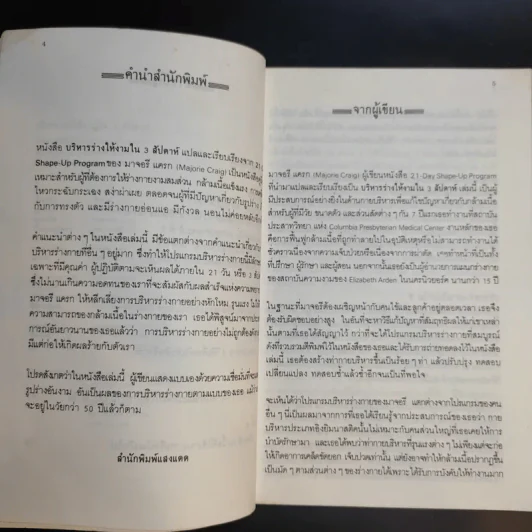 4
คำนำสำนักพิมพ์
หนังสือ บริหารร่างให้งามใน 3 สัปดาห์ แปลและเรียบเรียงจาก 21
Shape-Up Program ของ มาจอรี แครก (Marjorie Craig) เป็นหนังสือ
เหมาะสำหรับผู้ที่ต้องการให้ร่างกายงามสมส่วน กล้ามเนื้อแข็งแรง
ไหวกระฉับกระเฉง สง่าผ่าเผย ตลอดจนผู้ที่มีปัญหาเกี่ยวกับรูปร่าง
กับการทรงตัว และมีร่างกายอ่อนแอ มีกังวล นอนไม่ค่อยหลับ
คำแนะนำต่าง ๆ ในหนังสือเล่มนี้ มีข้อแตกต่างจากคำแนะนำเกี่ยวกับ
บริหารร่างกายที่อื่น ๆ อยู่มาก ซึ่งทำให้โปรแกรมบริหารร่างกายนี้
เฉพาะที่มีคุณค่า ผู้ปฏิบัติตามจะเห็นผลได้ภายใน 21 วัน หรือ 3
ซึ่งไม่นานเกินความอดทนของเราที่จะสัมผัสกับผลสำเร็จแห่งความ
มาจอรี แครก ให้หลีกเลี่ยงการบริหารร่างกายอย่างหักโหม รุนแรง
ความสามารถของกล้ามเนื้อในร่างกายของเรา เธอได้พิสูจน์มาจากประ
การณ์อันยาวนานของเธอแล้วว่า การบริหารร่างกายอย่างไม่ถูกต้อง
มีแต่ก่อให้เกิดผลร้ายกับตัวเรา
โปรดสังเกตว่าในหนังสือเล่มนี้ ผู้เขียนแสดงแบบเองด้วยความเชื่อมั่น
รูปร่างอันงาม อันเป็นผลของการบริหารร่างกายตามแบบของเธอ แม้
จะอยู่ในวัยกว่า 50 ปีแล้วก็ตาม
สำนักพิมพ์แสงแดด
จากผู้เขียน
มาจอรี แครก (Marjorie Craig) ผู้เขียนหนังสือ 21-Day Shape-Up Program
ที่นำมาแปลและเรียบเรียงเป็น บริหารร่างให้งามใน 3 สัปดาห์ เล่มนี้ เป็นผู้
มีประสบการณ์อย่างยิ่งในด้านกายบริหารเพื่อแก้ไขปัญหาเกี่ยวกับกล้ามเนื้อ
สำหรับผู้ที่มีวัย ขนาดตัว และส่วนสัดต่าง ๆ กัน 7 ปีแรกเธอทำงานที่สถาบัน
ประสาทวิทยา แห่ง Columbia Presbyterian Medical Center งานหลักของเธอ
คือการฟื้นฟูกล้ามเนื้อที่ถูกทำลายไปในอุบัติเหตุหรือไม่สามารถทำงานได้
ชั่วคราวเนื่องจากความเจ็บป่วยหรือเนื่องจากการผ่าตัด เธอทำหน้าที่เป็นทั้ง
ที่ปรึกษา ผู้รักษา และผู้สอน นอกจากนั้นเธอยังเป็นผู้อำนวยการแผนกร่างกาย
ของสถาบันความงามของ Elizabeth Arden ในนครนิวยอร์ค นานกว่า 15 ปี
ในฐานะที่มาจอรีต้องเผชิญหน้ากับคนไข้และลูกค้าอยู่ตลอดเวลา เธอจึง
ต้องรับผิดชอบอย่างสูง ในอันที่จะหาวิธีแก้ปัญหาที่สัมฤทธิผลให้แก่เขาเหล่า
นั้นตามที่เธอได้สัญญาไว้ กว่าที่จะได้โปรแกรมบริหารร่างกายที่สมบูรณ์
ดังที่รวบรวมตีพิมพ์ไว้ในหนังสือของเธอและได้รับการถ่ายทอดลงไว้ในหนังสือ
เล่มนี้ เธอต้องสร้างท่ากายบริหารขึ้นเป็นร้อย ๆ ท่า แล้วปรับปรุง ทดสอบ
เปลี่ยนแปลง ทดสอบซ้ำแล้วซ้ำอีกจนเป็นที่พอใจ
จะเห็นได้ว่าโปรแกรมบริหารร่างกายของมาจอรี แตกต่างจากโปรแกรมของคน
อื่น ๆ นี่เป็นผลมาจากการที่เธอได้เรียนรู้จากประสบการณ์ของเธอว่า กาย
บริหารประเภทยิมนาสติคนั้นไม่เหมาะกับคนส่วนใหญ่ที่เธอเคยให้การ
บำบัดรักษามา และเธอได้พบว่าท่ากายบริหารที่รุนแรงต่าง ๆ ไม่เพียงแต่จะก่อ
ให้เกิดอาการเคล็ดขัดยอก เจ็บปวดเท่านั้น แต่ยังอาจทำให้กล้ามเนื้อปรากฏขึ้น
เป็นมัด ๆ ตามส่วนต่าง ๆ ของร่างกายได้เพราะได้รับการบังคับให้ทำงานมาก